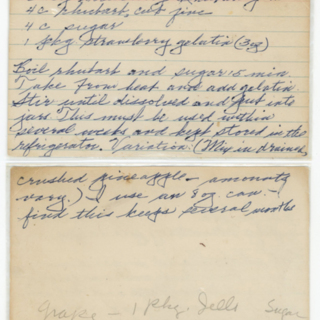 4 c rhubarb, cut fine
4 c sugar
1 pkg strawberry gelatin (3 oz)
Boil rhubarb and sugar 5 min.
Take from heat and add gelatin
Stir until dissolved and put into
jars This must be used within
several weeks and kept stored in the
refrigerator. Variation: (Mix in drained
crushed pineapple - amounts
vary.) I use an 8 oz can. -
find this keeps several months
grape - 1 pkg. Jello Sugar